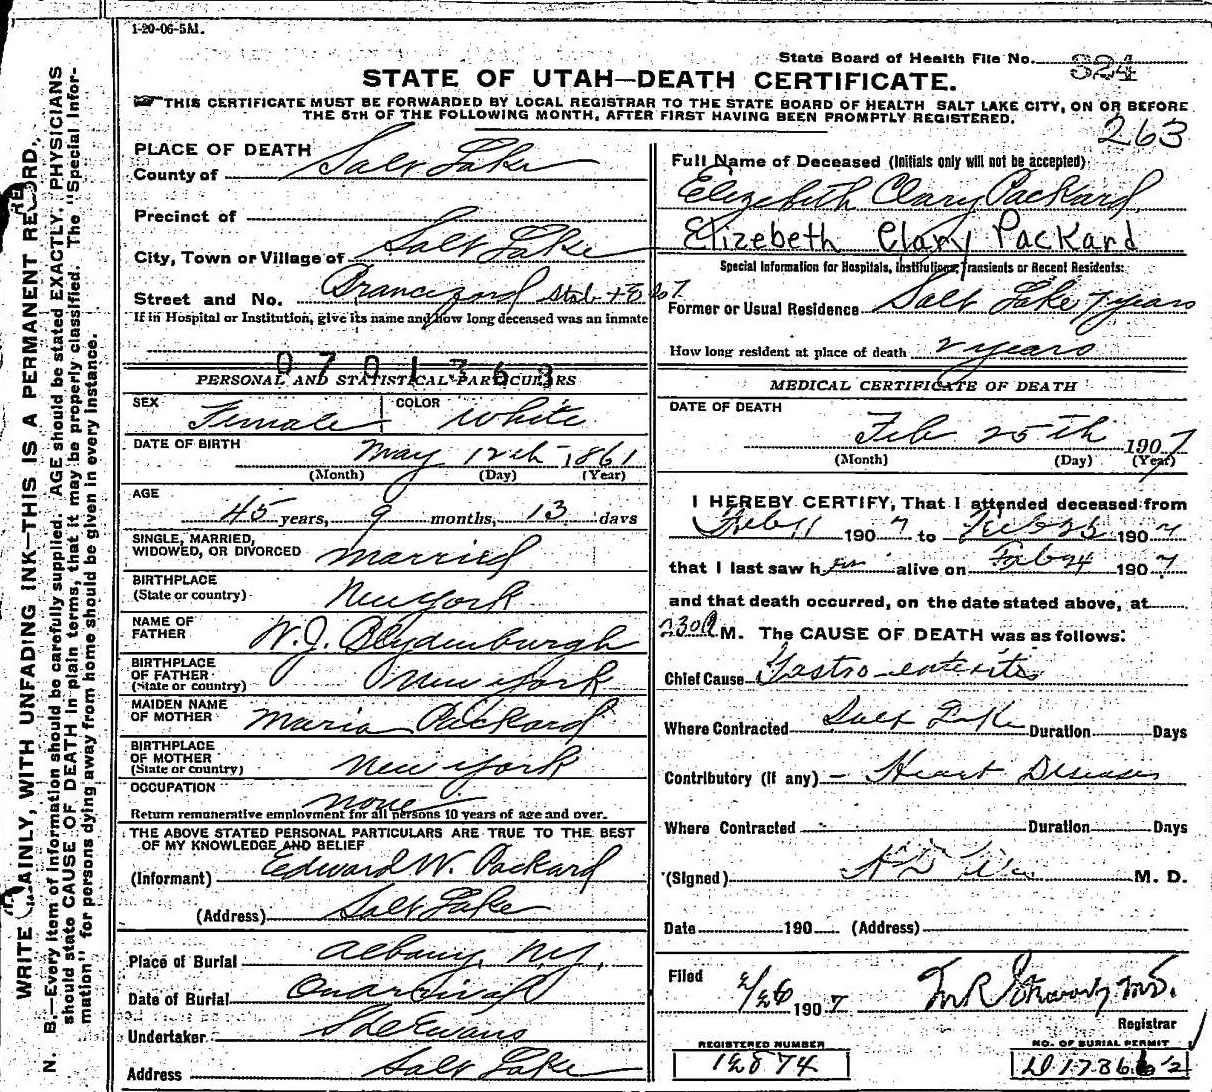 1-20-06-5M.
State Board of Health File No. 324
STATE OF UTAH—DEATH CERTIFICATE.
THIS CERTIFICATE MUST BE FORWARDED BY LOCAL REGISTRAR TO THE STATE BOARD OF HEALTH SALT LAKE CITY, ON OR BEFORE
THE 5TH OF THE FOLLOWING MONTH, AFTER FIRST HAVING BEEN PROMPTLY REGISTERED.
263
PLACE OF DEATH
County of Salt Lake
Precinct of
City, Town or Village of Salt Lake
Street and No.
If in Hospital or Institution, give its name and how long deceased was an inmate
0701363
PERSONAL AND STATISTICAL PARTICULARS
SEX Female COLOR White
DATE OF BIRTH May 12th 1861
(Month) (Day) (Year)
AGE
45 years, 9 months, 13 days
SINGLE, MARRIED,
WIDOWED, OR DIVORCED married
BIRTHPLACE
(State or country) New York
NAME OF
FATHER W. J. Blydenburgh
BIRTHPLACE
OF FATHER
(State or country) New York
MAIDEN NAME
OF MOTHER Maria Packard
BIRTHPLACE
OF MOTHER
(State or country) New York
OCCUPATION none
Return remunerative employment for all persons 10 years of age and over.
THE ABOVE STATED PERSONAL PARTICULARS ARE TRUE TO THE BEST
OF MY KNOWLEDGE AND BELIEF
(Informant) Edward W. Packard
(Address) Salt Lake
Place of Burial Albany, N.Y.
Date of Burial
Undertaker Evans
Address Salt Lake
Full Name of Deceased (Initials only will not be accepted)
Elizebeth Clary Packard
Elizebeth Clary Packard
Special Information for Hospitals, Institutions, Transients or Recent Residents:
Former or Usual Residence Salt Lake 7 years
How long resident at place of death 2 years
MEDICAL CERTIFICATE OF DEATH
DATE OF DEATH
Feb 25th 1907
(Month) (Day) (Year)
I HEREBY CERTIFY, That I attended deceased from
Feb 11 1907 to Feb 25 1907
that I last saw her alive on Feb 24 1907
and that death occurred, on the date stated above, at
230 M. The CAUSE OF DEATH was as follows:
Chief Cause Gastro-enteritis
Where Contracted Salt Lake Duration Days
Contributory (if any) Heart Disease
Where Contracted Duration Days
(Signed) M. D.
Date 190 (Address)
Filed 2/26 1907 M.D.
Registrar
REGISTERED NUMBER
NO. OF BURIAL PERMIT
WRITE PLAINLY, WITH UNFADING INK—THIS IS A PERMANENT RECORD.
N. B.—Every item of information should be carefully supplied. AGE should be stated EXACTLY. PHYSICIANS
should state CAUSE OF DEATH in plain terms, that it may be properly classified. The "Special Infor-
mation" for persons dying away from home should be given in every instance.